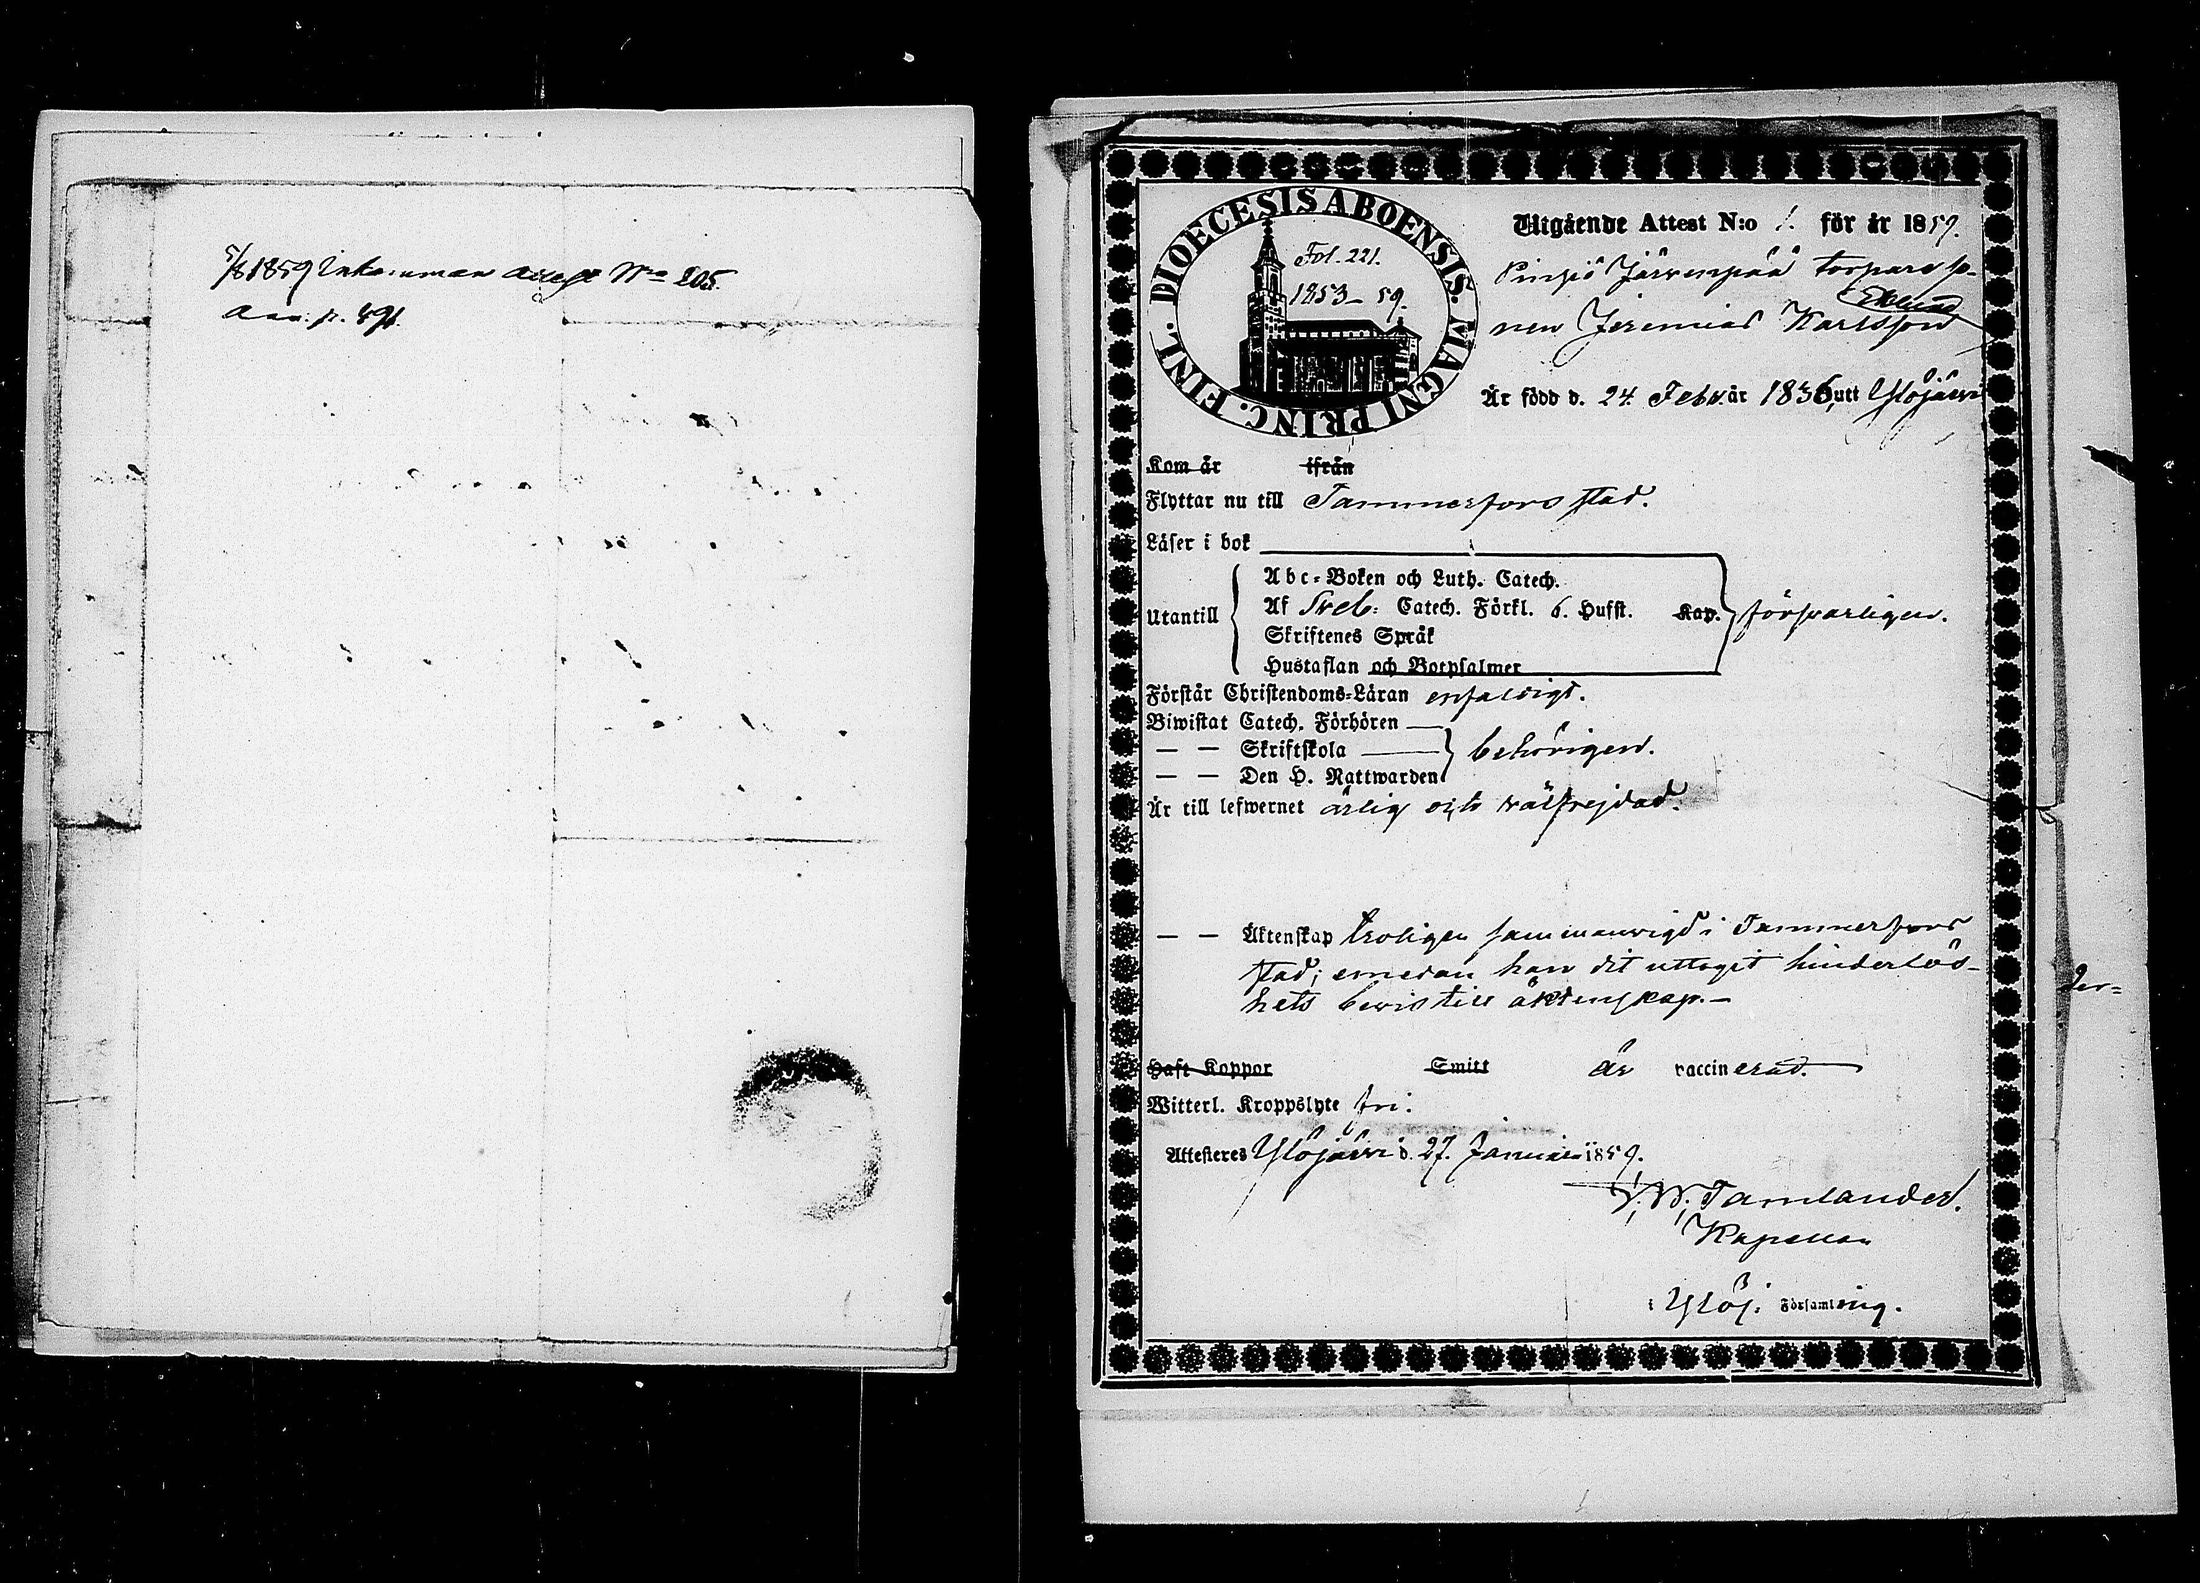 5/8 1859 Inkomman attest No 205.
pag. 891.
DIOECESIS ABOENSIS. MAGNI PRINC. FINL.
Fol. 221.
1853–59.
Utgående Attest N:o 1. för år 1859.
Pinsiö Järvenpää torpareso-
Eklund
nen Jeremias Karlsson
Är född d. 24 Febr. år 1836, utt Ylöjärvi
Kom år ifrån
Flyttar nu till Tammerfors stad.
Läser i bok
Abc-Boken och Luth. Catech.
Utantill Af Sveb: Catech. Förkl. 6. Hufst. Kap. försvarligen.
Skriftenes Språk
Hustaflan och Botpsalmer
Förstår Christendoms-Läran enfaldigt.
Biwistat Catech. Förhören
— — Skriftskola behörigen.
— — Den H. Nattwarden
Är till lefwernet ärlig och välfrejdad.
— — Äktenskap troligen sammanvigd i Tammerfors
stad; emedan han dit uttagit hinderlös-
hets bevis till äktenskap. —
Haft Koppor Smitt är vaccinerad.
Witterl. Kroppslyte fri.
Attesteres Ylöjärvi d. 27. Januari 1859.
Tamlander.
Kapellan
i Ylöj. Församling.